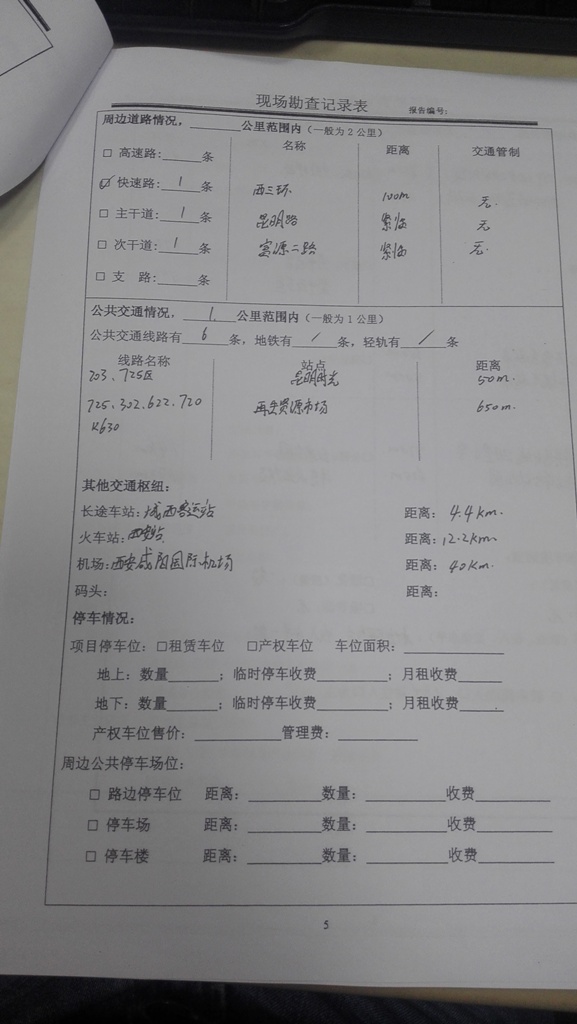 现场勘查记录表 报告编号:
周边道路情况，______公里范围内（一般为2公里）
名称 距离 交通管制
□ 高速路:_____条
☑ 快速路: 1 条 西三环 100m 无.
□ 主干道: 1 条 昆明路 紧临 无
□ 次干道: 1 条 富源二路 紧临 无.
□ 支 路:_____条
公共交通情况， 1 公里范围内（一般为1公里）
公共交通线路有 6 条，地铁有 / 条，轻轨有 / 条
线路名称 站点 距离
203、725区 昆明时光 50m.
725.302.622.720 市场 650m.
K630
其他交通枢纽：
长途车站: 城西客运站 距离： 4.4km.
火车站: 西安站 距离: 12.2km
机场: 西安咸阳国际机场 距离： 40km.
码头: 距离：
停车情况：
项目停车位：□租赁车位 □产权车位 车位面积：____________
地上：数量______；临时停车收费_________；月租收费_____
地下：数量______；临时停车收费_________；月租收费_____
产权车位售价：__________管理费：_________
周边公共停车场位：
□ 路边停车位 距离：_________数量：_________收费_________
□ 停车场 距离：_________数量：_________收费_________
□ 停车楼 距离：_________数量：_________收费_________
5